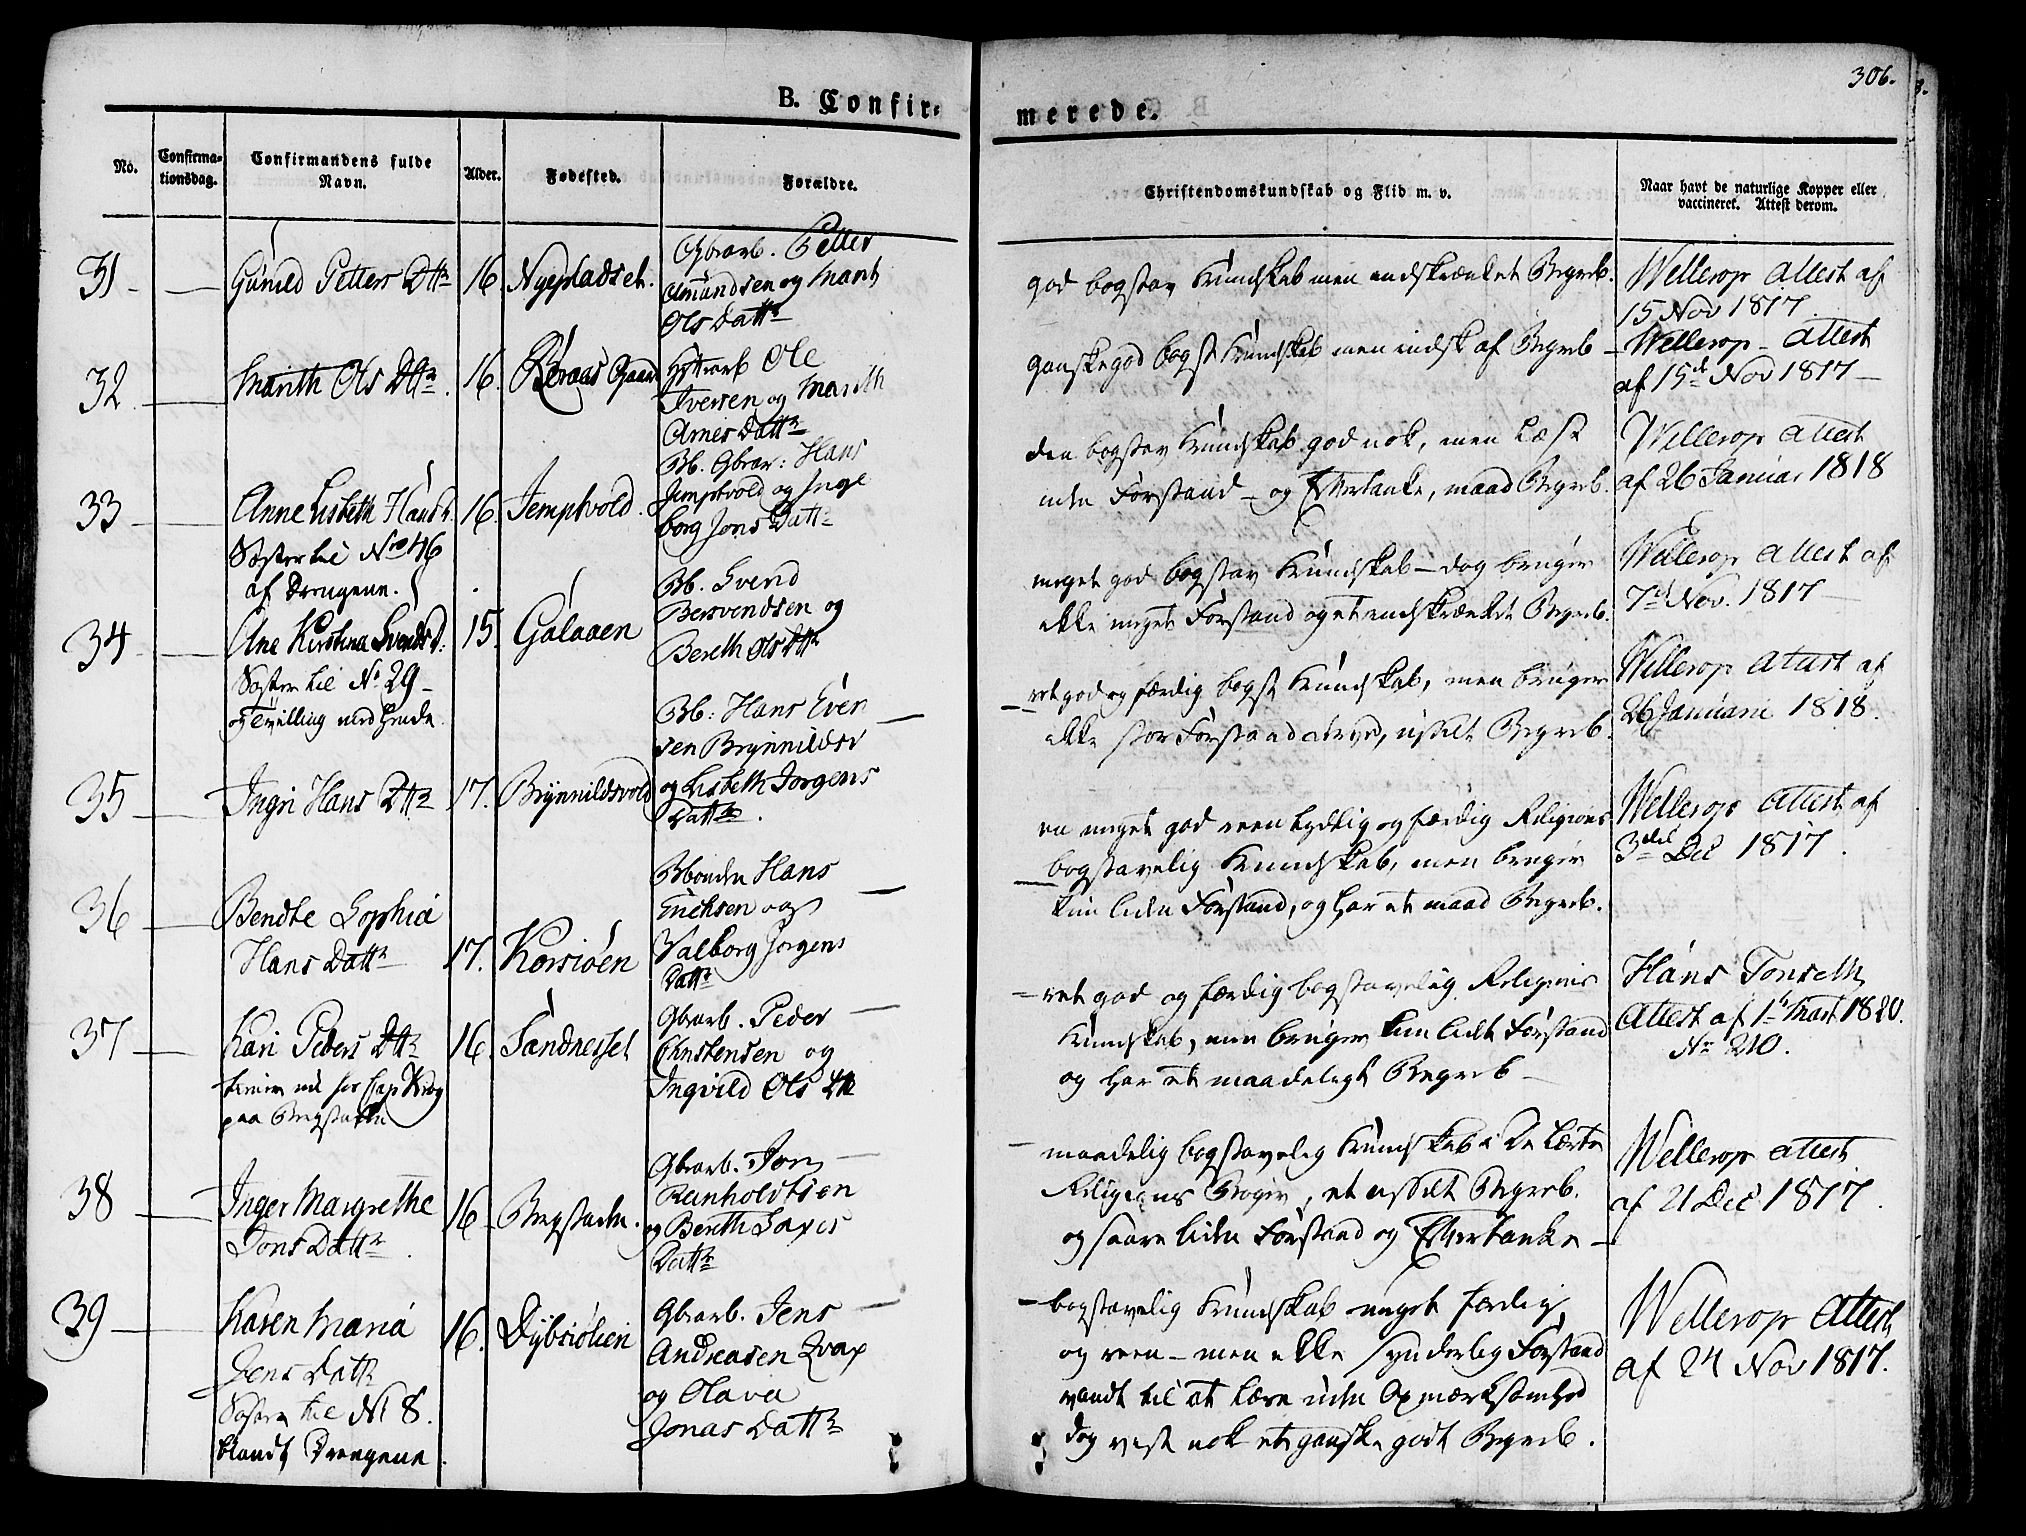 306.
B. Confir-
merede.
No.
Confirma-
tionsdag.
Confirmandens fulde
Navn.
Alder.
Fødested.
Forældre.
Christendomskundskab og Flid m. v.
Naar havt de naturlige Kopper eller
vaccineret. Attest derom.
31
Gunild Petters Dttr
16
Nyepladset.
Gbrarb. Petter
Amundsen og Marit
Ols Dattr
god bogstav Kundskab men indskrænket Begreb.
Wellerop Attest af
15 Nov 1817.
32
Marith Ols Dttr.
16.
Røraas Gaard
Hyttearb Ole
Iversen og Marith
Arnes Dattr
ganske god bogst Kundskab men indsk af Begreb
Wellerop Attest
af 15de Nov 1817
33
Anne Lisbeth Hans
Søster til Nro 46
af Drengene.
16.
Jemptvold.
Bb. Gbrar: Hans
Jemptvold og Inge
borg Jons Dattr
den bogstav Kundskab god nok, men Læst
uden Forstand og Eftertanke, maad Begreb.
Wellerop Attest
af 26 Januar 1818
34
Ane Kirstina Svends D:
Søster til No 29
og Tvilling med hende.
15.
Galaaen
Bb. Svend
Bersvendsen og
Bereth Ols Dttr
meget god bogstav Kundskab - dog bruger
ikke meget Forstand og et indskrænket Begreb.
Wellerop Attest af
7de Nov. 1817
35
Ingri Hans Dttr
17.
Brynnildsvold
Bb: Hans Even
sen Brynnildsv
og Lisbeth Jorgens
Dattr.
ret god og færdig bogst Kundskab, men bruger
ikke stor Forstand derved, usselt Begreb.
Wellerop Attest af
26 Januari 1818.
36
Bendte Sophia
Hans Dattr
17.
Korsiøen
Bonden Hans
Erichsen og
Valborg Jorgens
Dattr
en meget god reen tydelig og færdig Religions
bogstavelig Kundskab, men bruger
kun liden Forstand, og har et maad Begreb.
Wellerop Attest af
3die Dec 1817.
37
Kari Peders Dttr
tiener nu hos Cap Krog
paa Bergstaden
16
Sandnesset
Gbrarb. Peder
Christensen og
Ingvild Ols Dtt
ret god og færdig bogstavelig Religions
Kundskab, men bruger kun lidt Forstand
og har et maadeligt Begreb
Hans Tonseth
Attest af 1te Mart 1820.
No 210.
38
Inger Margrethe
Jons Dattr.
16
Bergstaden.
Gbrarb. Jon
Reinholdtsen
og Bereth Saxes
Dattr
maadelig bogstavelig Kundskab i De Lærte
Religions Bøger, et usselt Begreb.
og saare liden Forstand og Eftertanke
Wellerop Attest
af 21 Dec 1817.
39
Karen Maria
Jens Dattr
Søster til No 8.
blandt Drengene.
16.
Dybsiølien
Gbrarb. Jens
Andreasen Qvax
og Olava
Jonas Dattr
bogstavelig Kundskab meget færdig
og reen - men ikke synderlig Forstand
vandt til at læse uden Opmærksomhed
dog vist nok et ganske godt Begreb.
Wellerop Attest
af 24 Nov 1817.